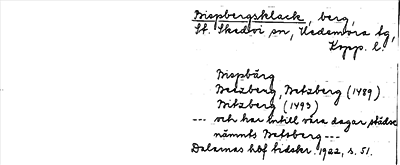 Bispbergsklack, berg,
St. Skedvi sn, Hedemora tg,
Kopp. l.
Bispbärg
Betzberg, Betzberg (1489)
Bitzberg (1493)
--- och har intill våra dagar städse
nämnts Bettsberg ---
Dalarnas hbf tidskr. 1922, s. 51.